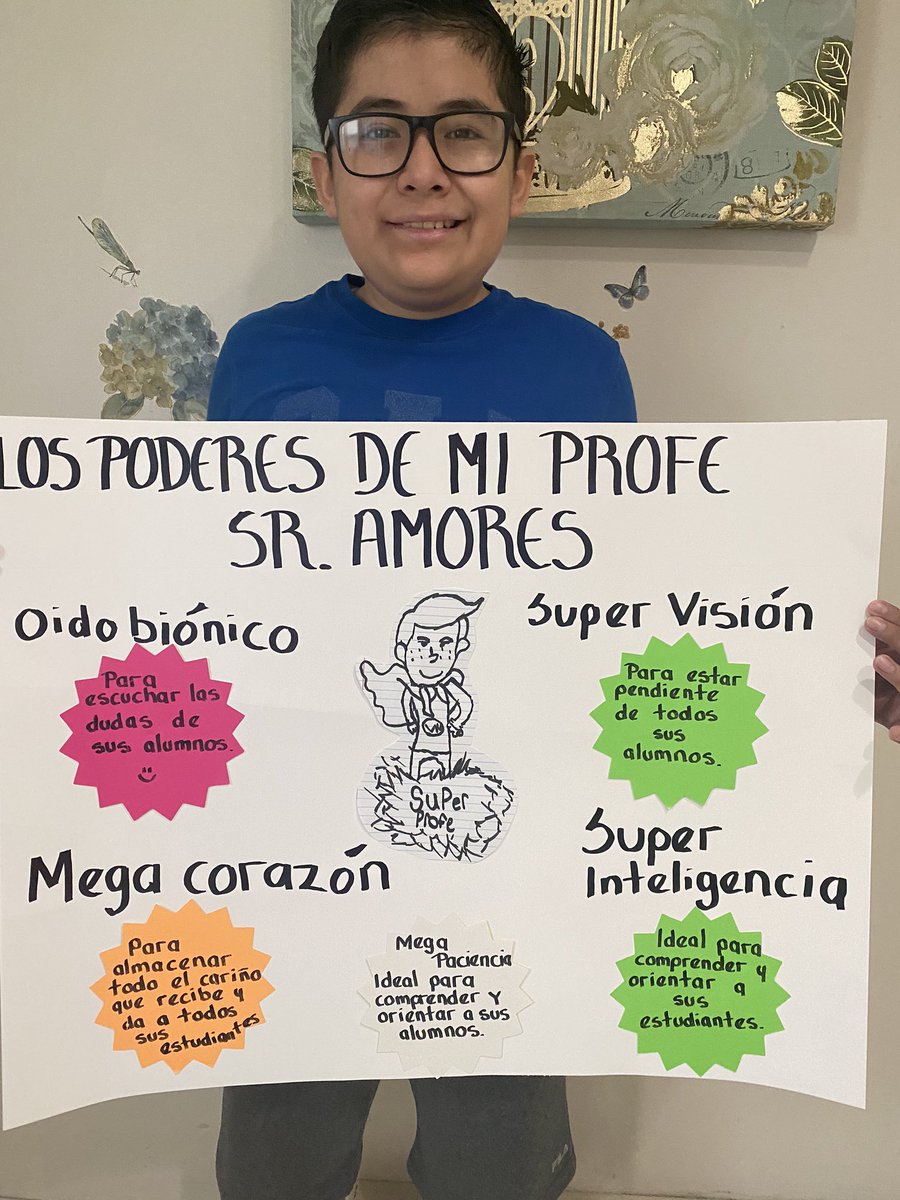 LOS PODERES DE MI PROFE
SR. AMORES
Oido biónico
Para
escuchar las
dudas de
sus alumnos.
Super Visión
Para estar
pendiente
de todos
sus
alumnos.
Super
Profe
Mega corazón
Para
almacenar
todo el cariño
que recibe y
da a todos
sus
estudiantes
Mega
Paciencia
Ideal para
comprender y
orientar a sus
alumnos.
Super
Inteligencia
Ideal para
comprender y
orientar a
sus
estudiantes.
8